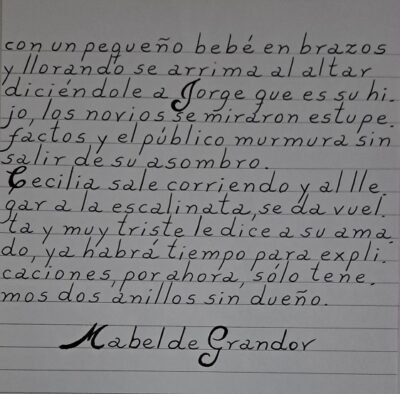 con un pequeño bebé en brazos
y llorando se arrima al altar
diciéndole a Jorge que es su hi.
jo, los novios se miraron estupe.
factos y el público murmura sin
salir de su asombro.
Cecilia sale corriendo y al lle.
gar a la escalinata, se da vuel.
ta y muy triste le dice a su ama.
do, ya habrá tiempo para expli.
caciones, por ahora, sólo tene.
mos dos anillos sin dueño.
Mabel de Grandov